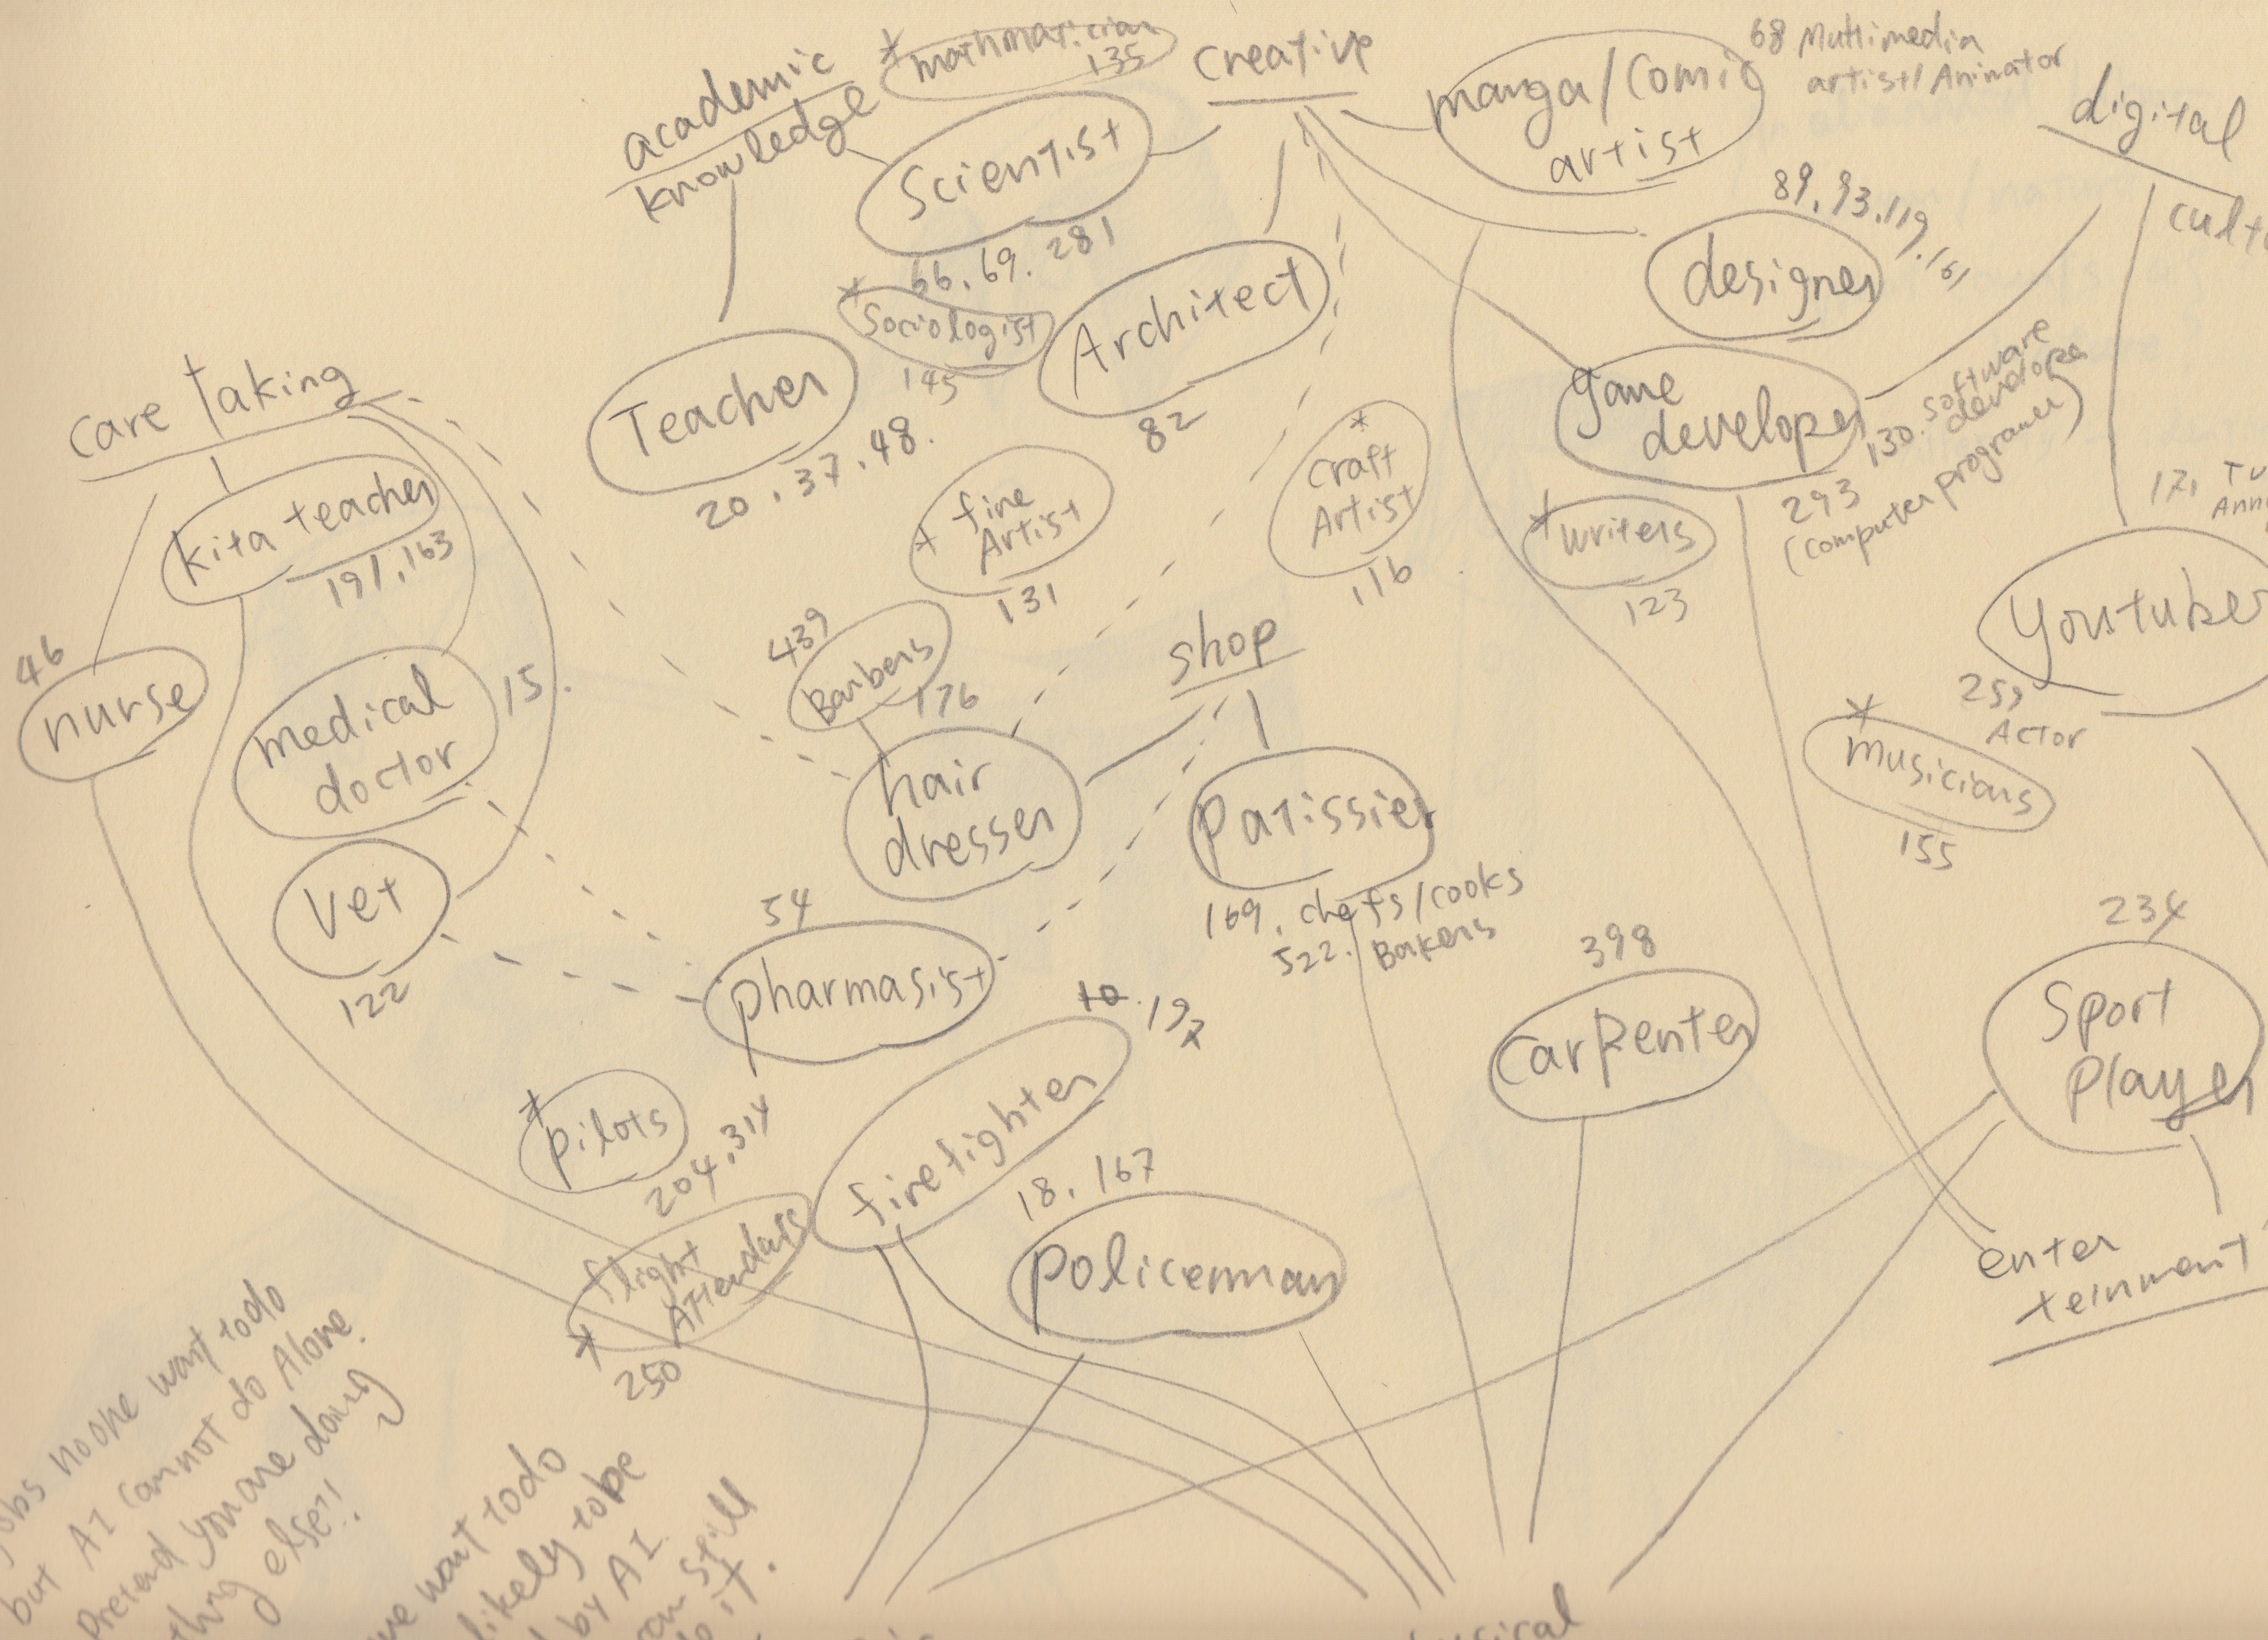 * mathmatician
135
creative
academic
knowledge
Scientist
66. 69. 281
manga/comic
artist
68 Multimedia
artist/Animator
digital
89. 93. 119. 161
designer
* Sociologist
145
Architect
82
Teacher
20. 37. 48.
care taking
kita teacher
191, 163
game
developer
130. software
developer
293
(computer programer)
* craft
Artist
116
* fine
Artist
131
* writers
123
171
Youtuber
259
Actor
46
nurse
medical
doctor
15.
439
Barbers
176
shop
hair
dresser
Patissier
169. chefs/cooks
522. Bakers
* musicians
155
Vet
122
54
pharmasist
398
carpenter
234
Sport
player
* pilots
204, 314
10. 197
firefighter
18, 167
policemman
* flight
Attendants
250
enter
teinment
no one want todo
but AI cannot do Alone.
Pretend you are doing
else?!
want todo
likely to be
by AI
still
it.